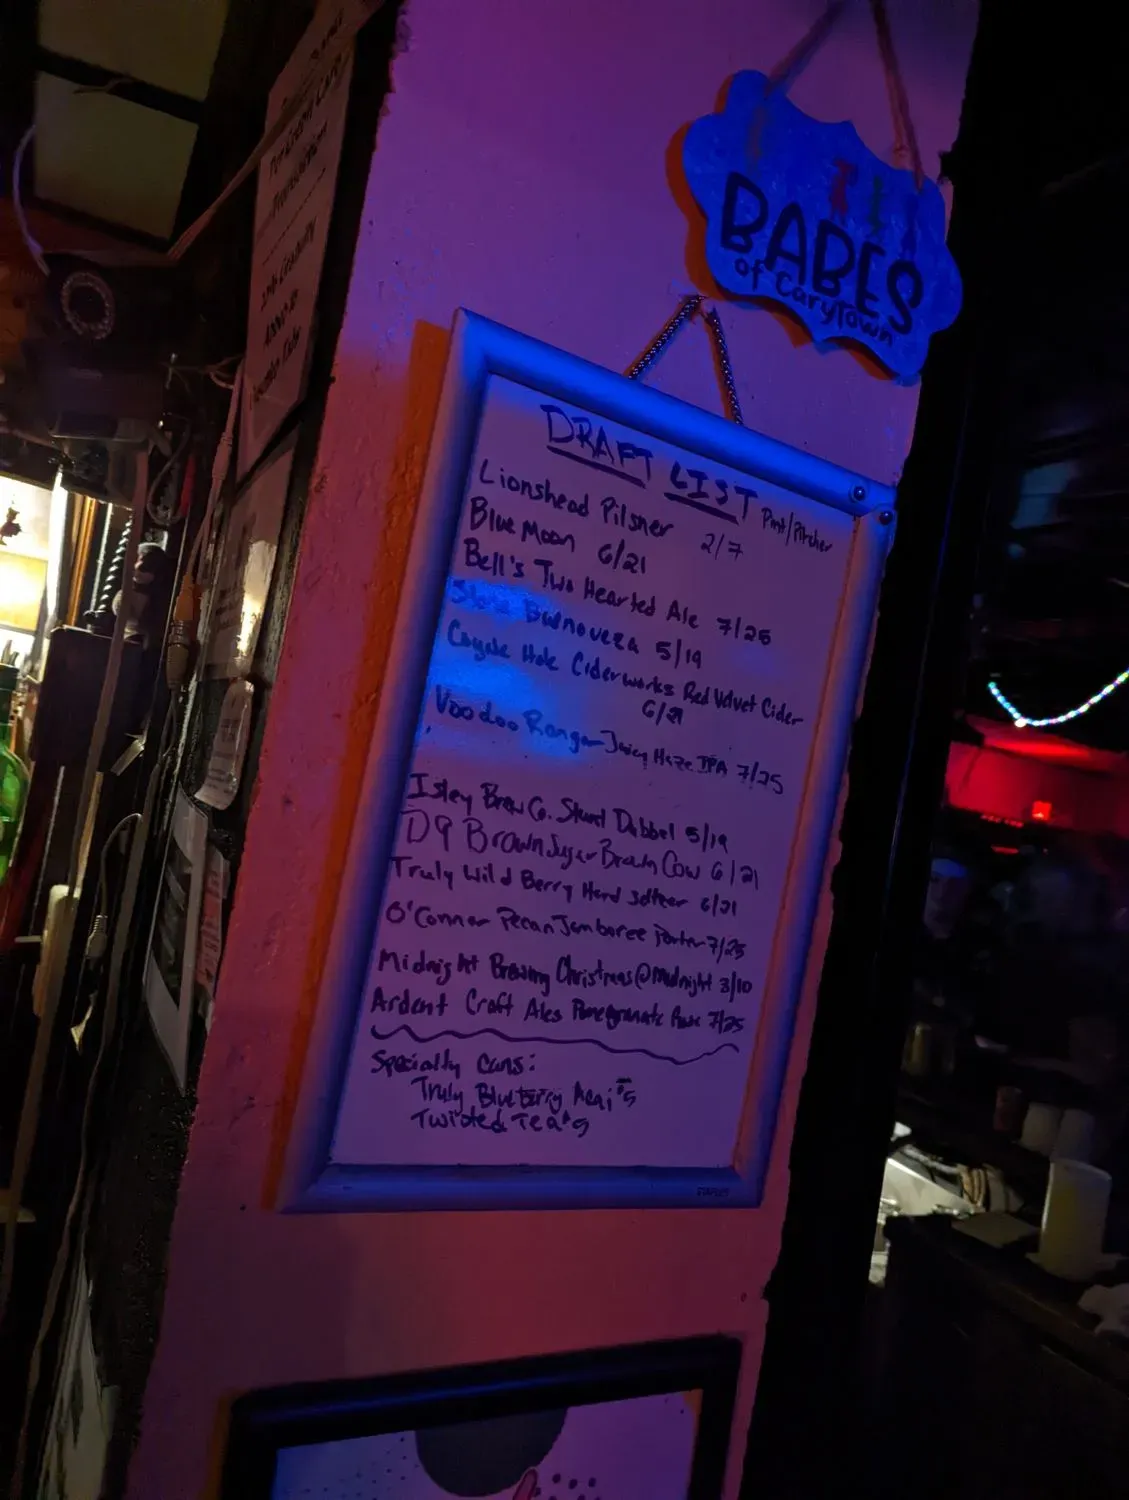 BABES
of Carytown
DRAFT LIST Pint/Pitcher
Lionshead Pilsner 2/7
Blue Moon 6/21
Bell's Two Hearted Ale 7/25
Stone Buenoveza 5/19
Coyote Hole Ciderworks Red Velvet Cider
6/21
Voodoo Ranger Juicy Haze IPA 7/25
Isley Brew Co. Dubbel 5/19
D9 Brown Sugar Brown Cow 6/21
Truly Wild Berry Hard Seltzer 6/21
O'Connor Pecan Jamboree Porter 7/25
Midnight Brewing Christmas@Midnight 3/10
Ardent Craft Ales Pomegranate 7/25
Specialty Cans:
Truly Blueberry Acai $5
Twisted Tea $5